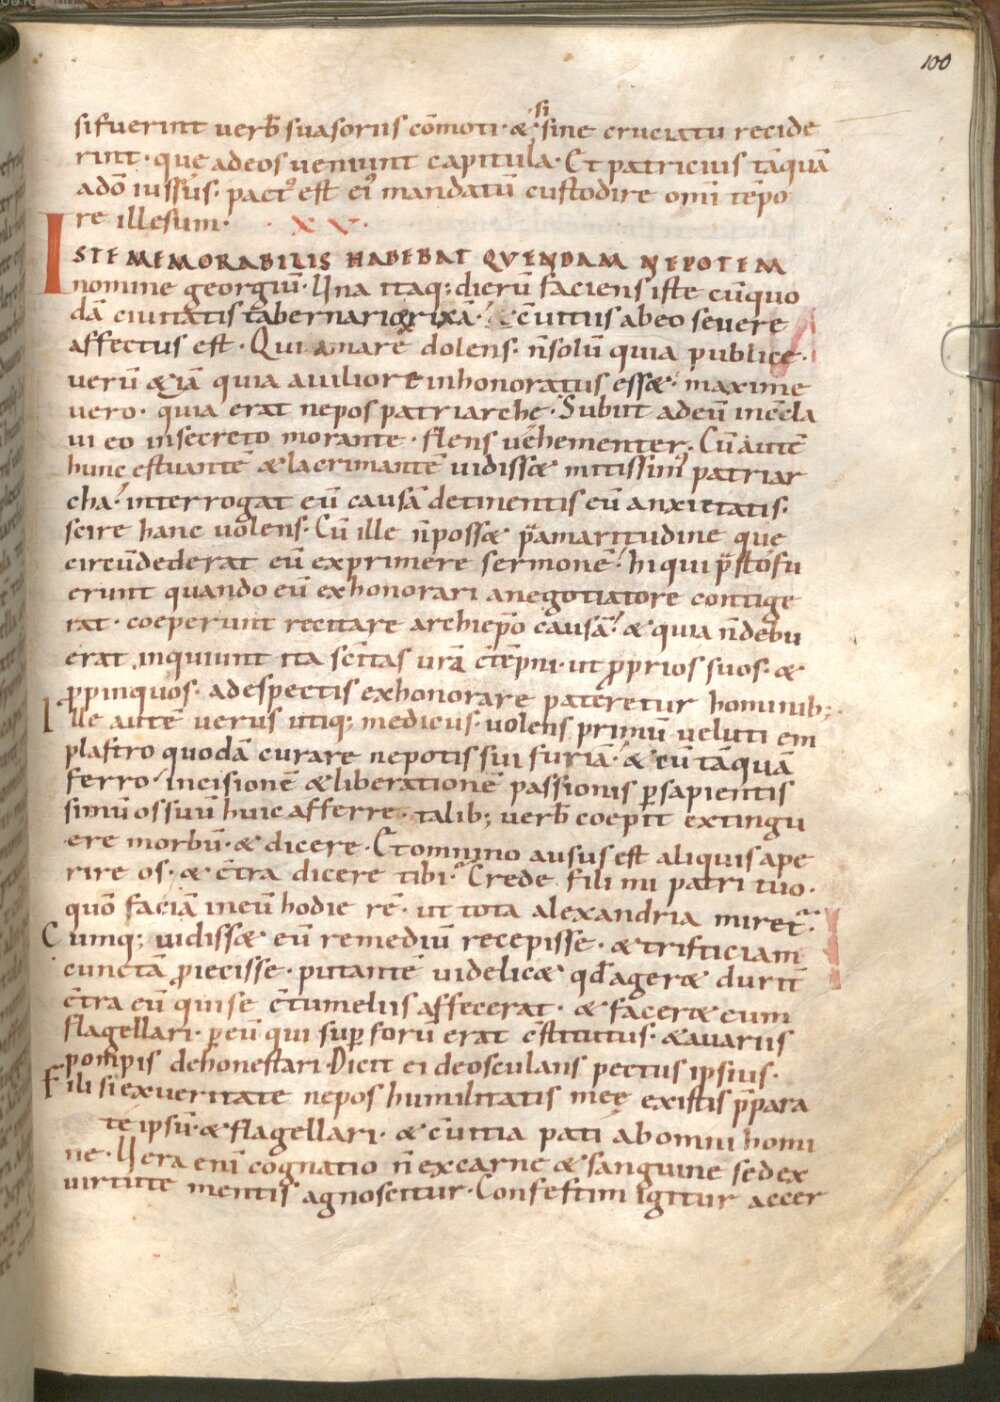 100
si fuerint uerb̄ suasoriis cōmoti · & si sine cruciatu recide
rint · quę ad eos ueniunt capitula · Et patricius tāquā
a dō iussus · pact᾽ est ei᾽ mandatū custodire omī tēpo
re illesum · · XV ·
ISTE MEMORABILIS HABEBAT QVENDAM NEPOTEM
nomine georgiū · Una itaq; dierū faciens iste cū quo
dā ciuitatis tabernario rixā · cūitiis ab eo seuere
affectus est · Qui amare dolens · n̄ solū quia publice ·
uerū & iā quia a uiliore inhonoratus ess& · maxime
uero · quia erat nepos patriarchę · Subiit ad eū in cella
ui eo in secreto morante · flens uehementer · Cū autē
hunc estuantē & lacrimantē uidiss& mitissim᾽ patriar
cha · interrogat eū causā detinentis eū anxietatis ·
scire hanc uolens · Cū ille n̄ poss& p̄ amaritudine que
circūdederat eū exprimere sermonē · hi qui p̄sto fu
erunt quando eū exhonorari a negotiatore contige
rat · coeperunt recitare archiep̄o causā · & quia n̄ debu
erat inquiunt ita sc̄itas ur̄a c̄tēpni · ut proprios suos · &
propinquos · a despectis exhonorare pateretur hominib; ·
Ille autē uerus utiq; medicus · uolens primū ueluti em
plastro quodā curare nepotis sui furiā · & eū tāquā
ferro incisionē & liberationē passionis per sapientis
simū os suū huic afferre · talib; uerb̄ coepit extingu
ere morbū · & dicere · Et omnino ausus est aliquis ape
rire os · & c̄tra dicere tibi · Crede fili mi patri tuo ·
quō faciā in eū hodie rē · ut tota alexandria miret᾽ ·
Cumq; uidiss& eū remediū recepisse · & tristiciam
cunctā proiecisse · putantē uidelic& qd̄ ager& durit̄
c̄tra eū qui se c̄tumeliis affecerat · & facer& eum
flagellari · per eū qui super forū erat c̄stitutus · & auariis
pompis dehonestari · Dicit ei deosculans pectus ipsius ·
Fili si ex ueritate nepos humilitatis meę existis p̄para
te ipsū · & flagellari · & c̄uitia pati ab omni homi
ne · Uera enī cognatio n̄ ex carne & sanguine sed ex
uirtute mentis agnoscitur · Confestim igitur accer